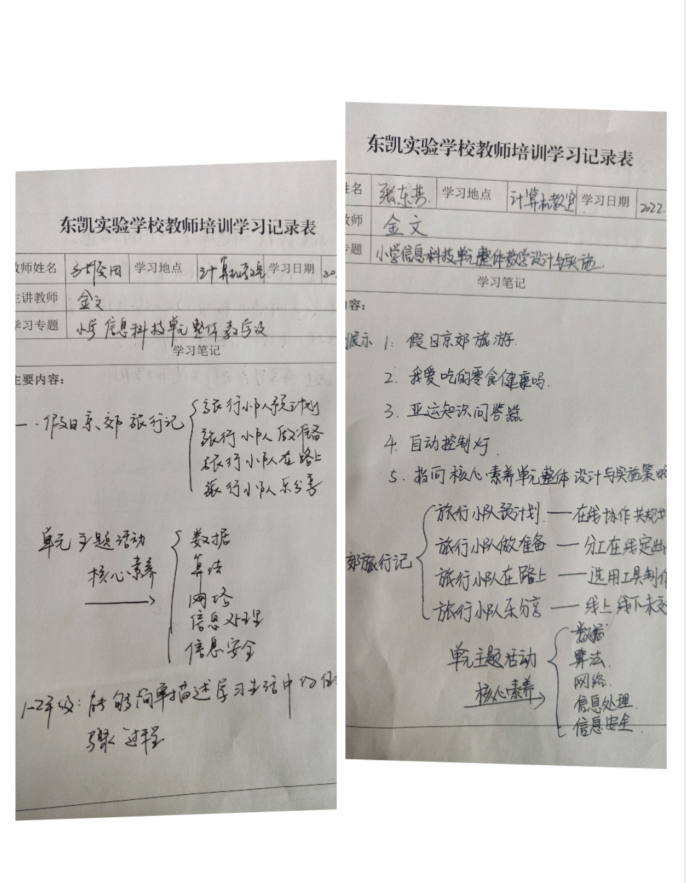 东凯实验学校教师培训学习记录表
教师姓名 学习地点 计算机教室 学习日期 20
主讲教师 金文
学习专题 小学信息科技单元整体教学设
学习笔记
主要内容:
一.假日京郊旅行记
旅行小队说计划
旅行小队做准备
旅行小队在路上
旅行小队乐分享
单元主题活动
核心素养
数据
算法
网络
信息处理
信息安全
1-2年级:能够简单描述学习生活中的
骤过程
东凯实验学校教师培训学习记录表
姓名 张东 学习地点 计算机教室 学习日期 2022.
教师 金文
题 小学信息科技单元整体教学设计与实施
学习笔记
容:
展示 1. 假日京郊旅游.
2. 我爱吃的零食健康吗.
3. 亚运知识问答器
4. 自动控制灯.
5. 指向核心素养单元整体设计与实施策略
郊旅行记
旅行小队说计划.——在线协作共规划
旅行小队做准备——分工在线定
旅行小队在路上——选用工具制作
旅行小队乐分享——线上线下来交
单元主题活动
核心素养
数据
算法.
网络.
信息处理.
信息安全.